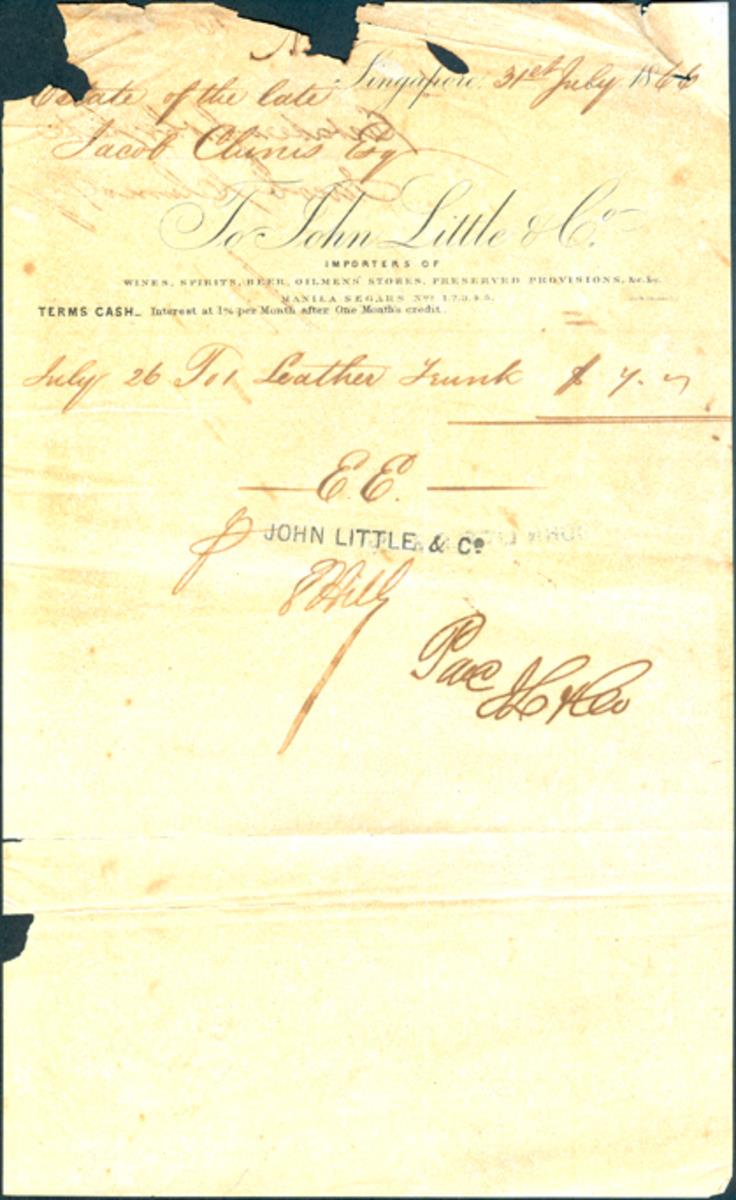 Singapore 31st July 1866
Estate of the late
Jacob Clunis Esq
To John Little & Co.
IMPORTERS OF
WINES, SPIRITS, BEER, OILMENS STORES, PRESERVED PROVISIONS, &c.&c.
MANILA SEGARS Nos 1.2.3.4.5.
TERMS CASH_ Interest at 1% per Month after One Month's credit.
July 26 To 1 Leather Trunk $ 7.
E.E.
p JOHN LITTLE & Co